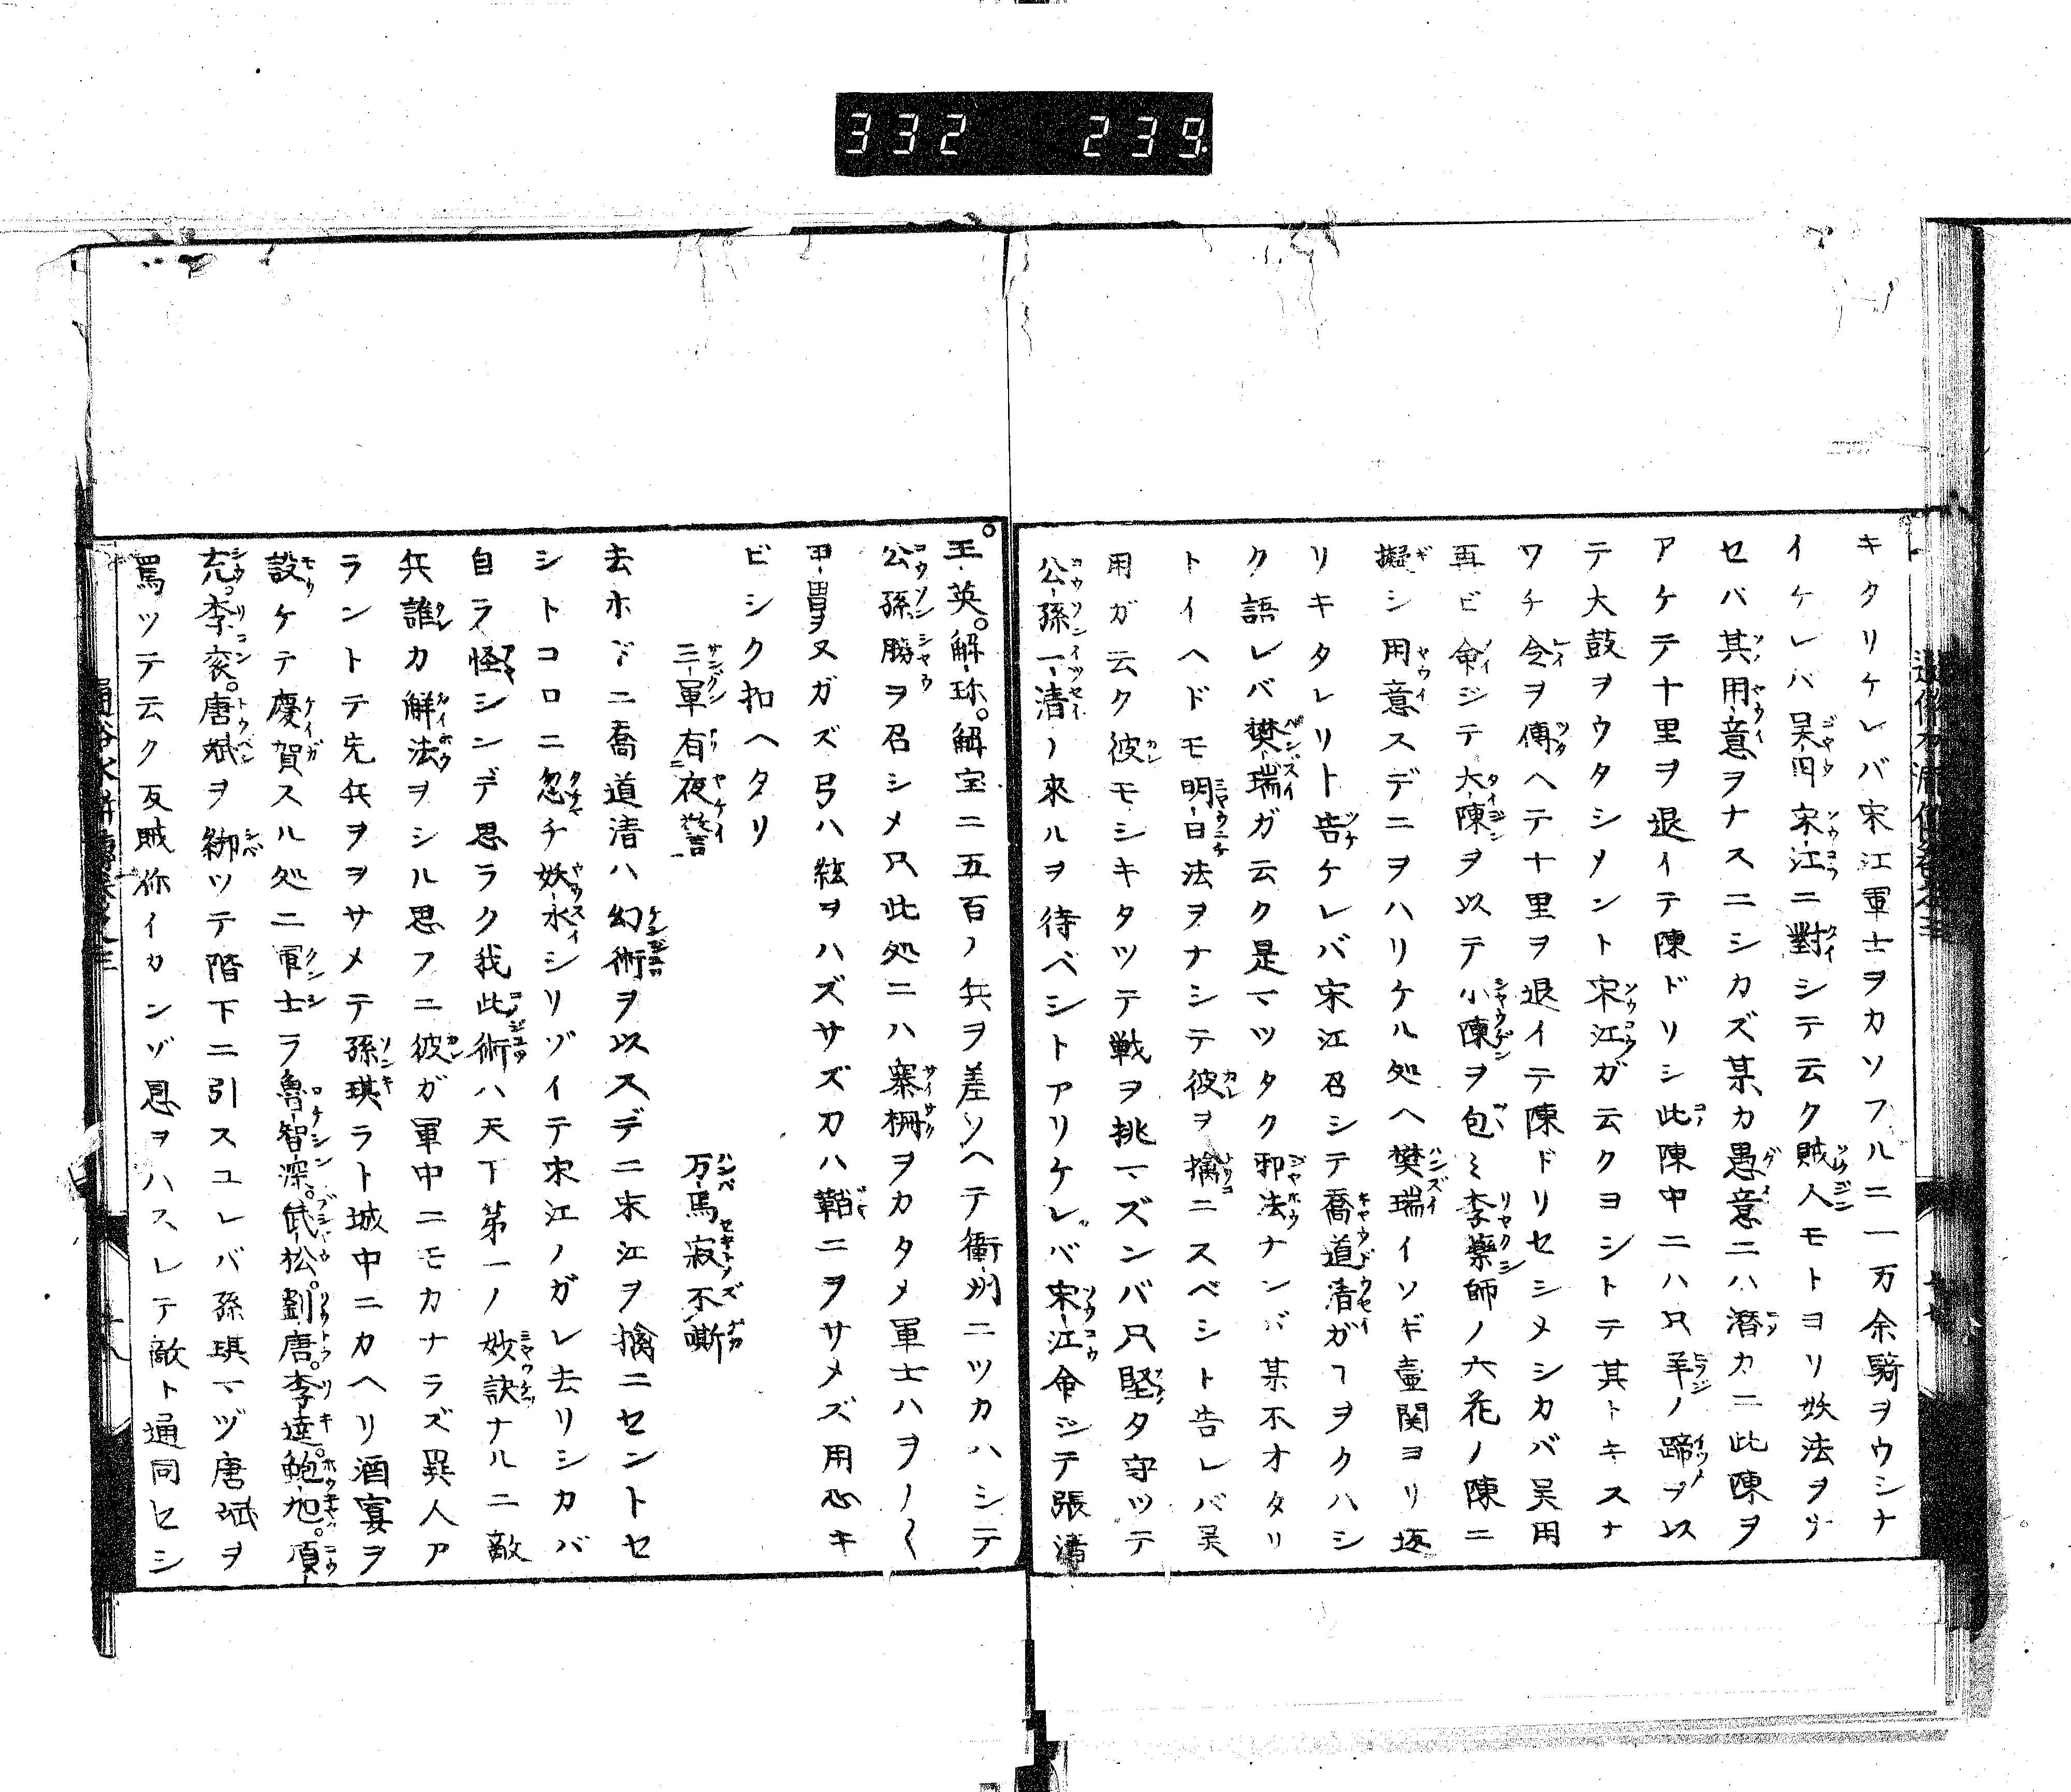 332 239
キタリケレバ宋江軍士ヲカソフルニ一万余騎ヲウシナ
イケレバ吴用宋江ニ對シテ云ク賊人モトヨリ妖法ヲヅ
セバ其用意ヲナスニシカズ某カ愚意ニハ潛カニ此陳ヲ
アケテ十里ヲ退イテ陳ドリシ此陳中ニハ只羊ノ蹄ヲ以
テ大鼓ヲウタシメント宋江ガ云クヨシトテ其トキスナ
ワチ令ヲ傳ヘテ十里ヲ退イテ陳ドリセシメシカバ吴用
再ビ命ジテ大陳ヲ以テ小陳ヲ包ミ李藥師ノ六花ノ陳ニ
擬シ用意スデニヲハリケル処ヘ樊瑞イソギ壷関ヨリ返
リキタレリト告ケレバ宋江召シテ喬道清ガヿヲクハシ
ク語レバ樊瑞ガ云ク是マツタク邪法ナンバ某不オタリ
トイヘドモ明日法ヲナシテ彼ヲ擒ニスベシト告レバ吴
用ガ云ク彼モシキタツテ戦ヲ挑マズンバ只堅タ守ツテ
公孫一清ノ來ルヲ待ベシトアリケレバ宋江命シテ張清
王英。解珎。解宝ニ五百ノ兵ヲ差ソヘテ衞州ニツカハシテ
公孫勝ヲ召シメ只此処ニハ寨柵ヲカタメ軍士ハヲノ〱
甲冑ヲヌガズ弓ハ絃ヲハズサズ刀ハ鞘ニヲサメズ用心キ
ビシク扣ヘタリ
三軍有夜警 万馬寂不嘶
去ホドニ喬道清ハ幻術ヲ以スデニ宋江ヲ擒ニセントセ
シトコロニ忽チ妖水シリゾイテ宋江ノガレ去リシカバ
自ラ怪シンデ思ラク我此術ハ天下第一ノ妙訣ナルニ敵
兵誰カ解法ヲシル思フニ彼ガ軍中ニモカナラズ異人ア
ラントテ先兵ヲヲサメテ孫琪ラト城中ニカヘリ酒宴ヲ
設ケテ慶賀スル処ニ軍士ラ魯智深。武松。劉唐。李逵。鮑旭。項
充。李衮。唐斌ヲ綁ツテ階下ニ引スユレバ孫琪マヅ唐斌ヲ
罵ツテ云ク反賊你イカンゾ恩ヲハスレテ敵ト通同セシ